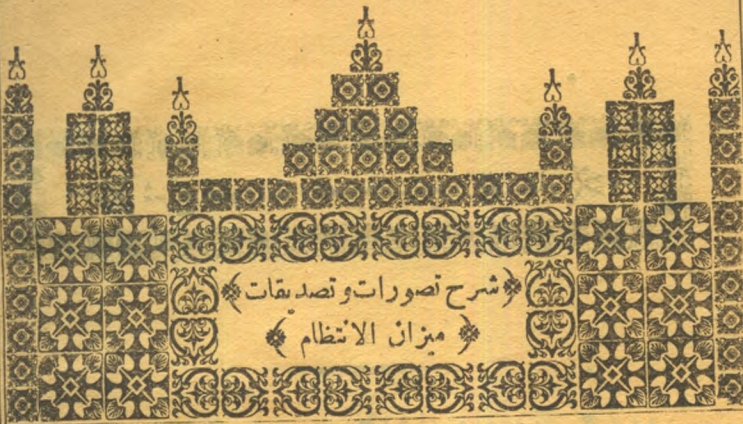 ﴿شرح تصورات وتصديقات﴾
﴿ ميزان الانتظام ﴾